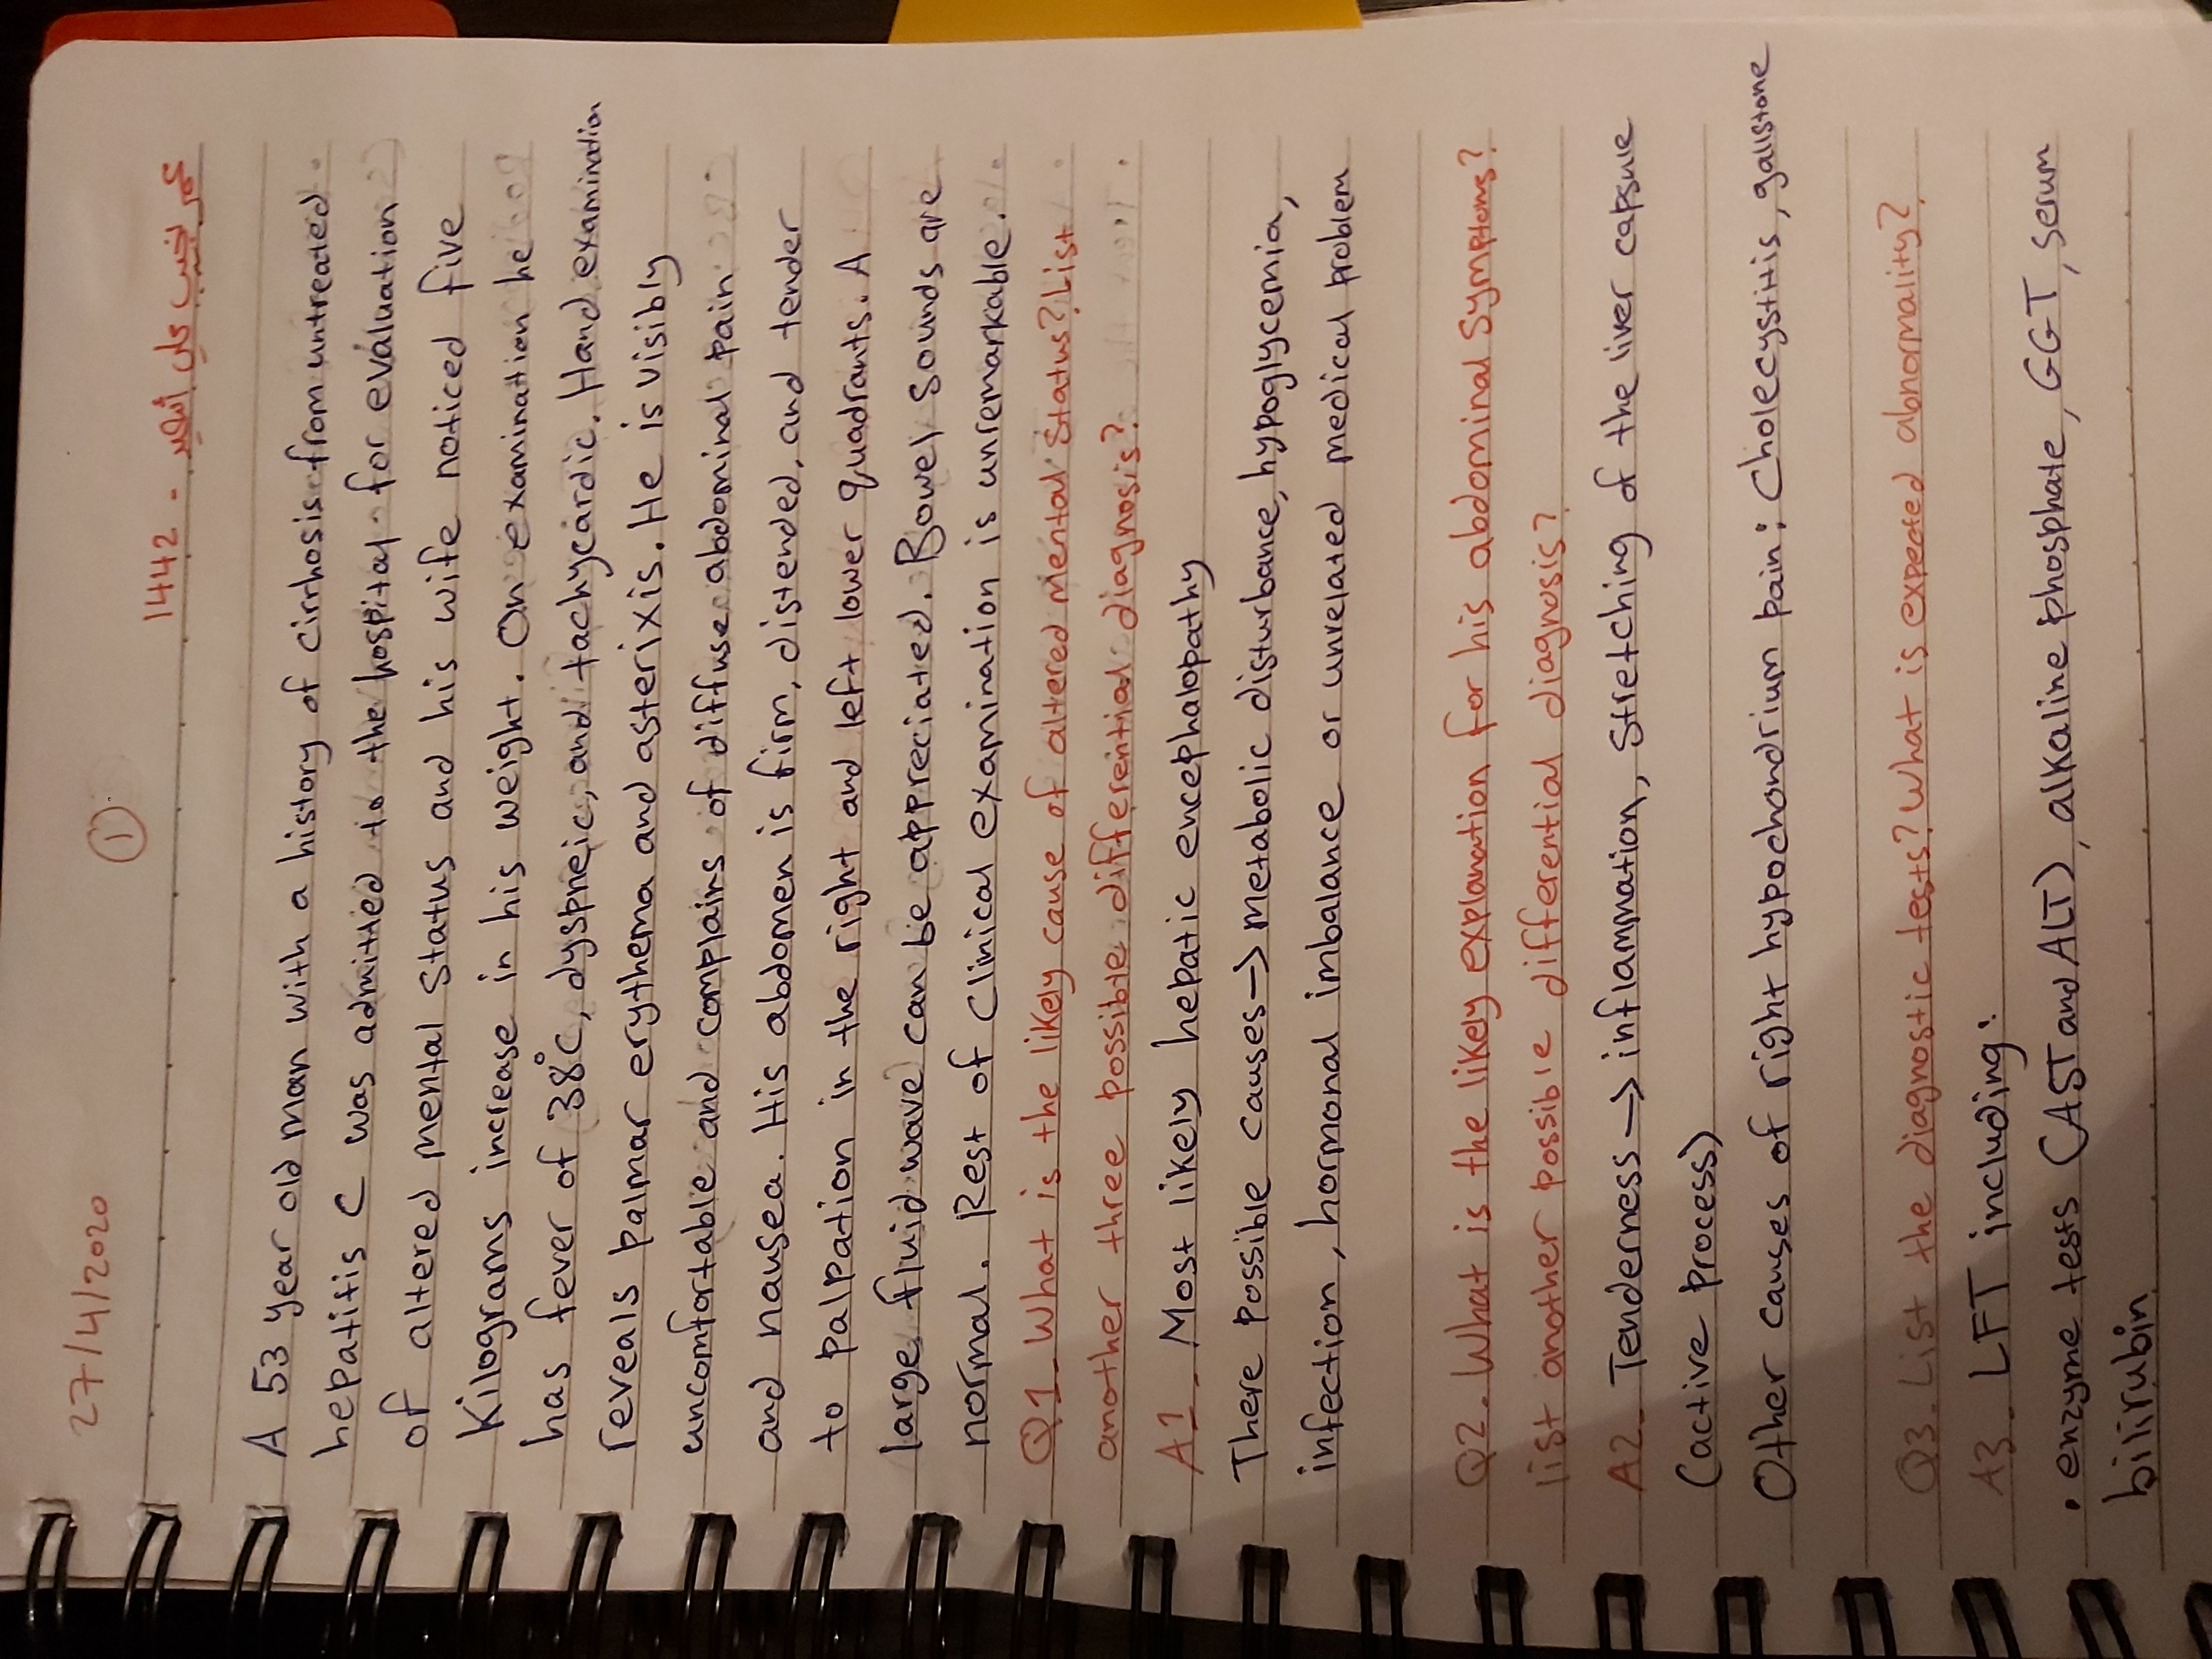 27/4/2020
①
1442 -
A 53 year old man with a history of cirrhosis from untreated
hepatitis C was admitted to the hospital for evaluation
of altered mental status and his wife noticed five
Kilograms increase in his weight. On examination he
has fever of 38°C, dyspneic, and tachycardic. Hand examination
reveals palmar erythema and asterixis. He is visibly
uncomfortable and complains of diffuse abdominal pain
and nausea. His abdomen is firm, distended, and tender
to palpation in the right and left lower quadrants. A
large fluid wave can be appreciated. Bowel sounds are
normal. Rest of clinical examination is unremarkable.
Q1_ What is the likely cause of altered mental status? List
another three possible differential diagnosis?
A1_ Most likely hepatic encephalopathy
There possible causes → metabolic disturbance, hypoglycemia,
infection, hormonal imbalance or unrelated medical problem
Q2. What is the likely explanation for his abdominal symptoms?
list another possible differential diagnosis?
A2_ Tenderness → inflammation, stretching of the liver capsule
(active process)
Other causes of right hypochondrium pain: Cholecystitis, gallstone
Q3. List the diagnostic tests? What is expected abnormality?
A3_ LFT including:
• enzyme tests (AST and ALT), alkaline phosphate, GGT, serum
bilirubin